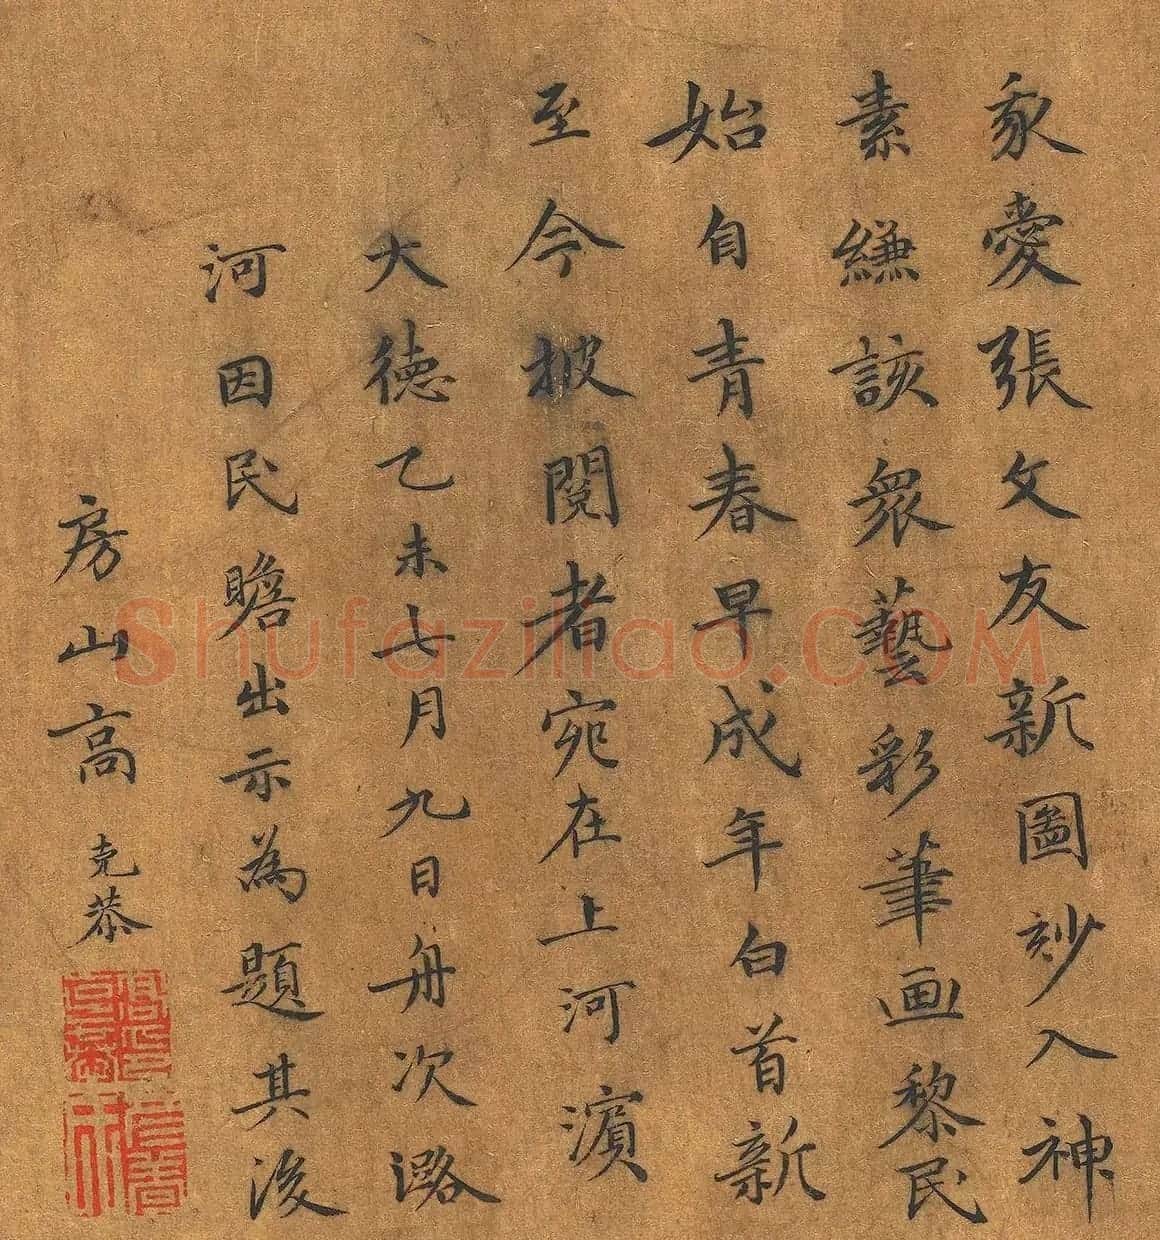 我愛張文友新圖玅入神
素縑該衆藝彩筆画黎民
始自青春早成年白首新
至今披閱者宛在上河濱
大德乙未七月九日舟次潞
河因民瞻出示為題其後
房山高克恭
Shufaziliao.COM